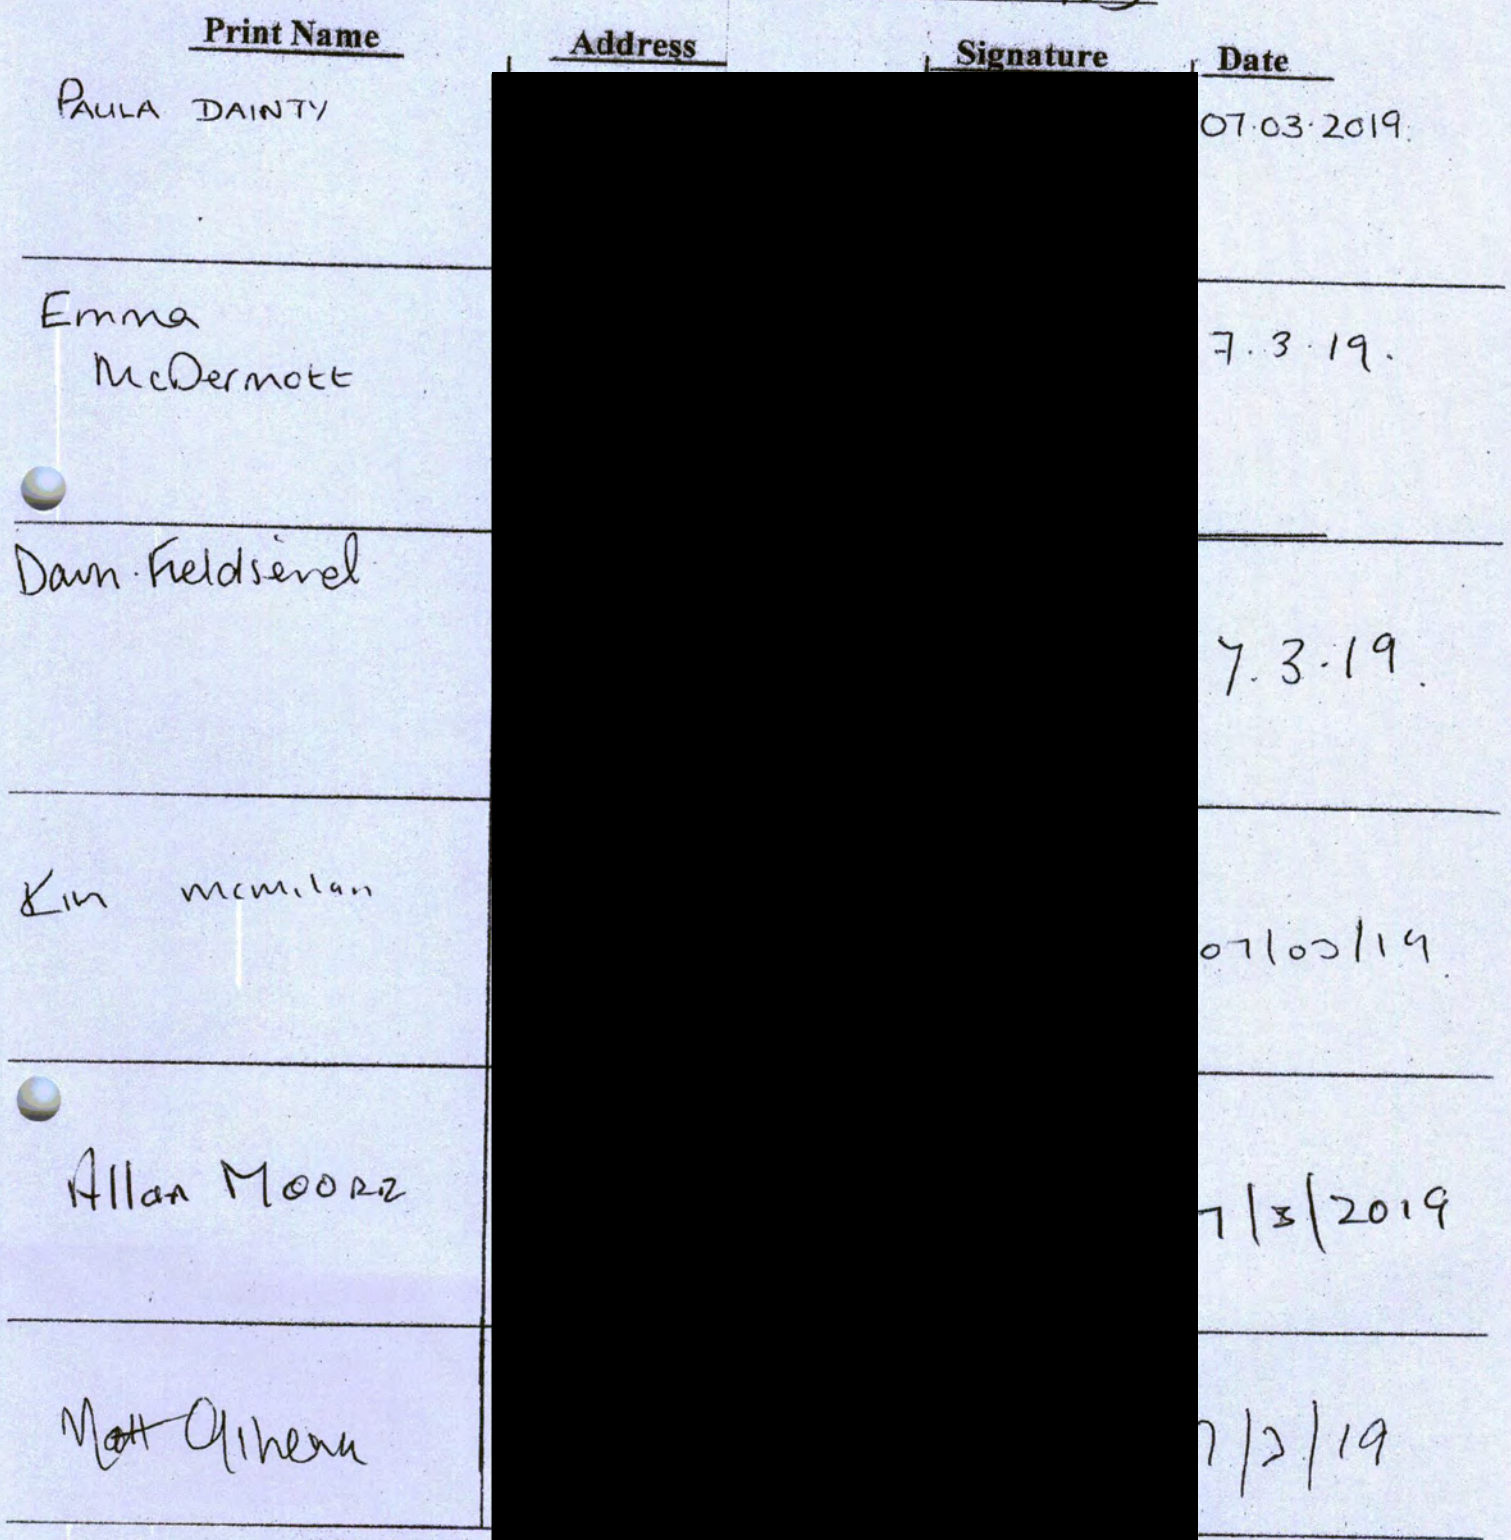 Print Name Address Signature Date
PAULA DAINTY 07.03.2019.
Emma
McDermott 7.3.19.
Dawn 7.3.19.
Kim mcmilan 07/03/19
Allan MOORE 7/3/2019
Matt 7/3/19